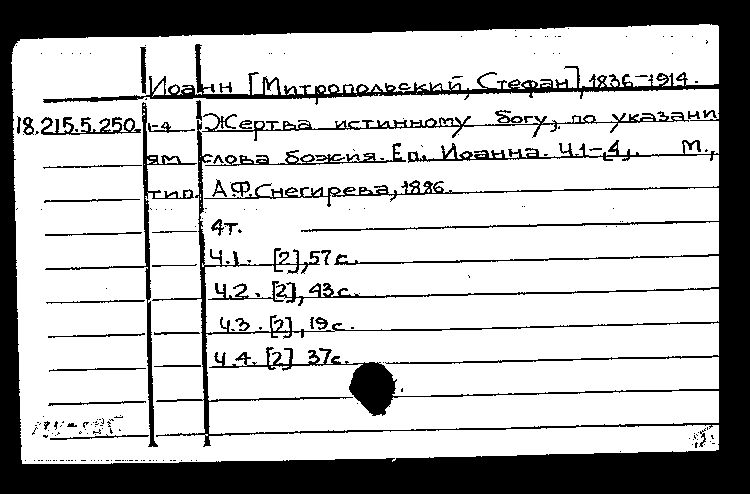 Иоанн [Митропольский, Стефан], 1836-1914.
18.215.5.250. 1-4 Жертва истинному богу, по указани
ям слова божия. Еп. Иоанна. Ч.1-4. М.,
тип. А.Ф.Снегирева, 1886.
4т.
Ч.1. [2], 57 с.
Ч.2. [2], 43 с.
Ч.3. [2], 19 с.
Ч.4. [2] 37с.